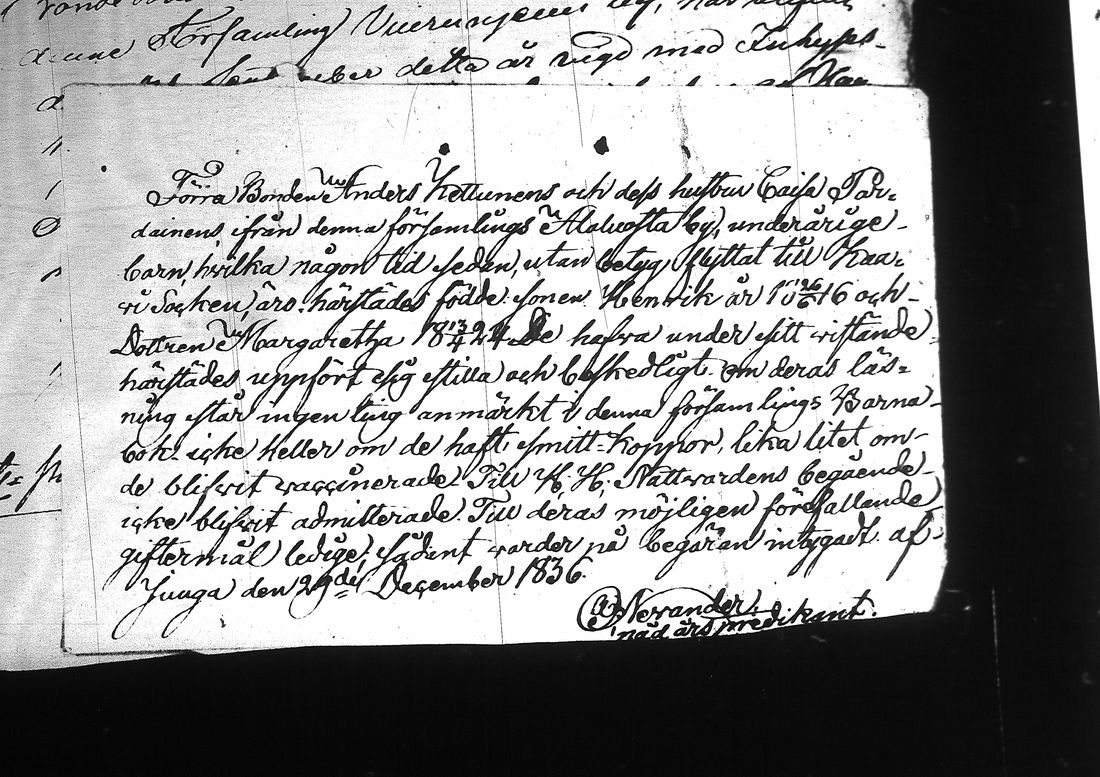 denne Församling
detta är vigd med Inhyses-
Förra Bonden Anders Kettunens och dess hustru Caisa Par-
dainens, ifrån denna församlings Alalvosta by, underårige
barn, hvilka någon tid sedan, utan betyg, flyttat till Kaa-
vi Socken, äro härstädes födde. sonen Henrik år 18 26/6 16 och
Dottren Margaretha 18 13/4 24. De hafva under sitt vistande
härstädes uppfört sig stilla och beskedligt. om deras läs-
ning står ingen ting anmärkt i denna församlings Barna-
bok: icke heller om de haft smitt-koppor, lika litet om
de blifvit vaccinerade. Till H. H. Nattvardens begående
icke blifvit admitterade. Till deras möjligen förefallande
giftermål ledige, sådant varder på begäran intygadt. af
den 29de December 1836.
Nerander.
nåd. års predikant.